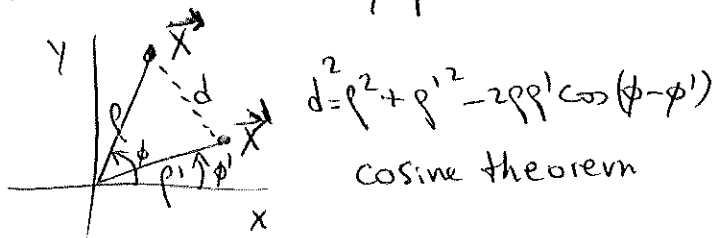 y
x⃗
d
ρ
ϕ
x⃗'
ρ'
ϕ'
x
d²=ρ²+ρ'²-2ρρ'cos(ϕ-ϕ')
cosine theorem